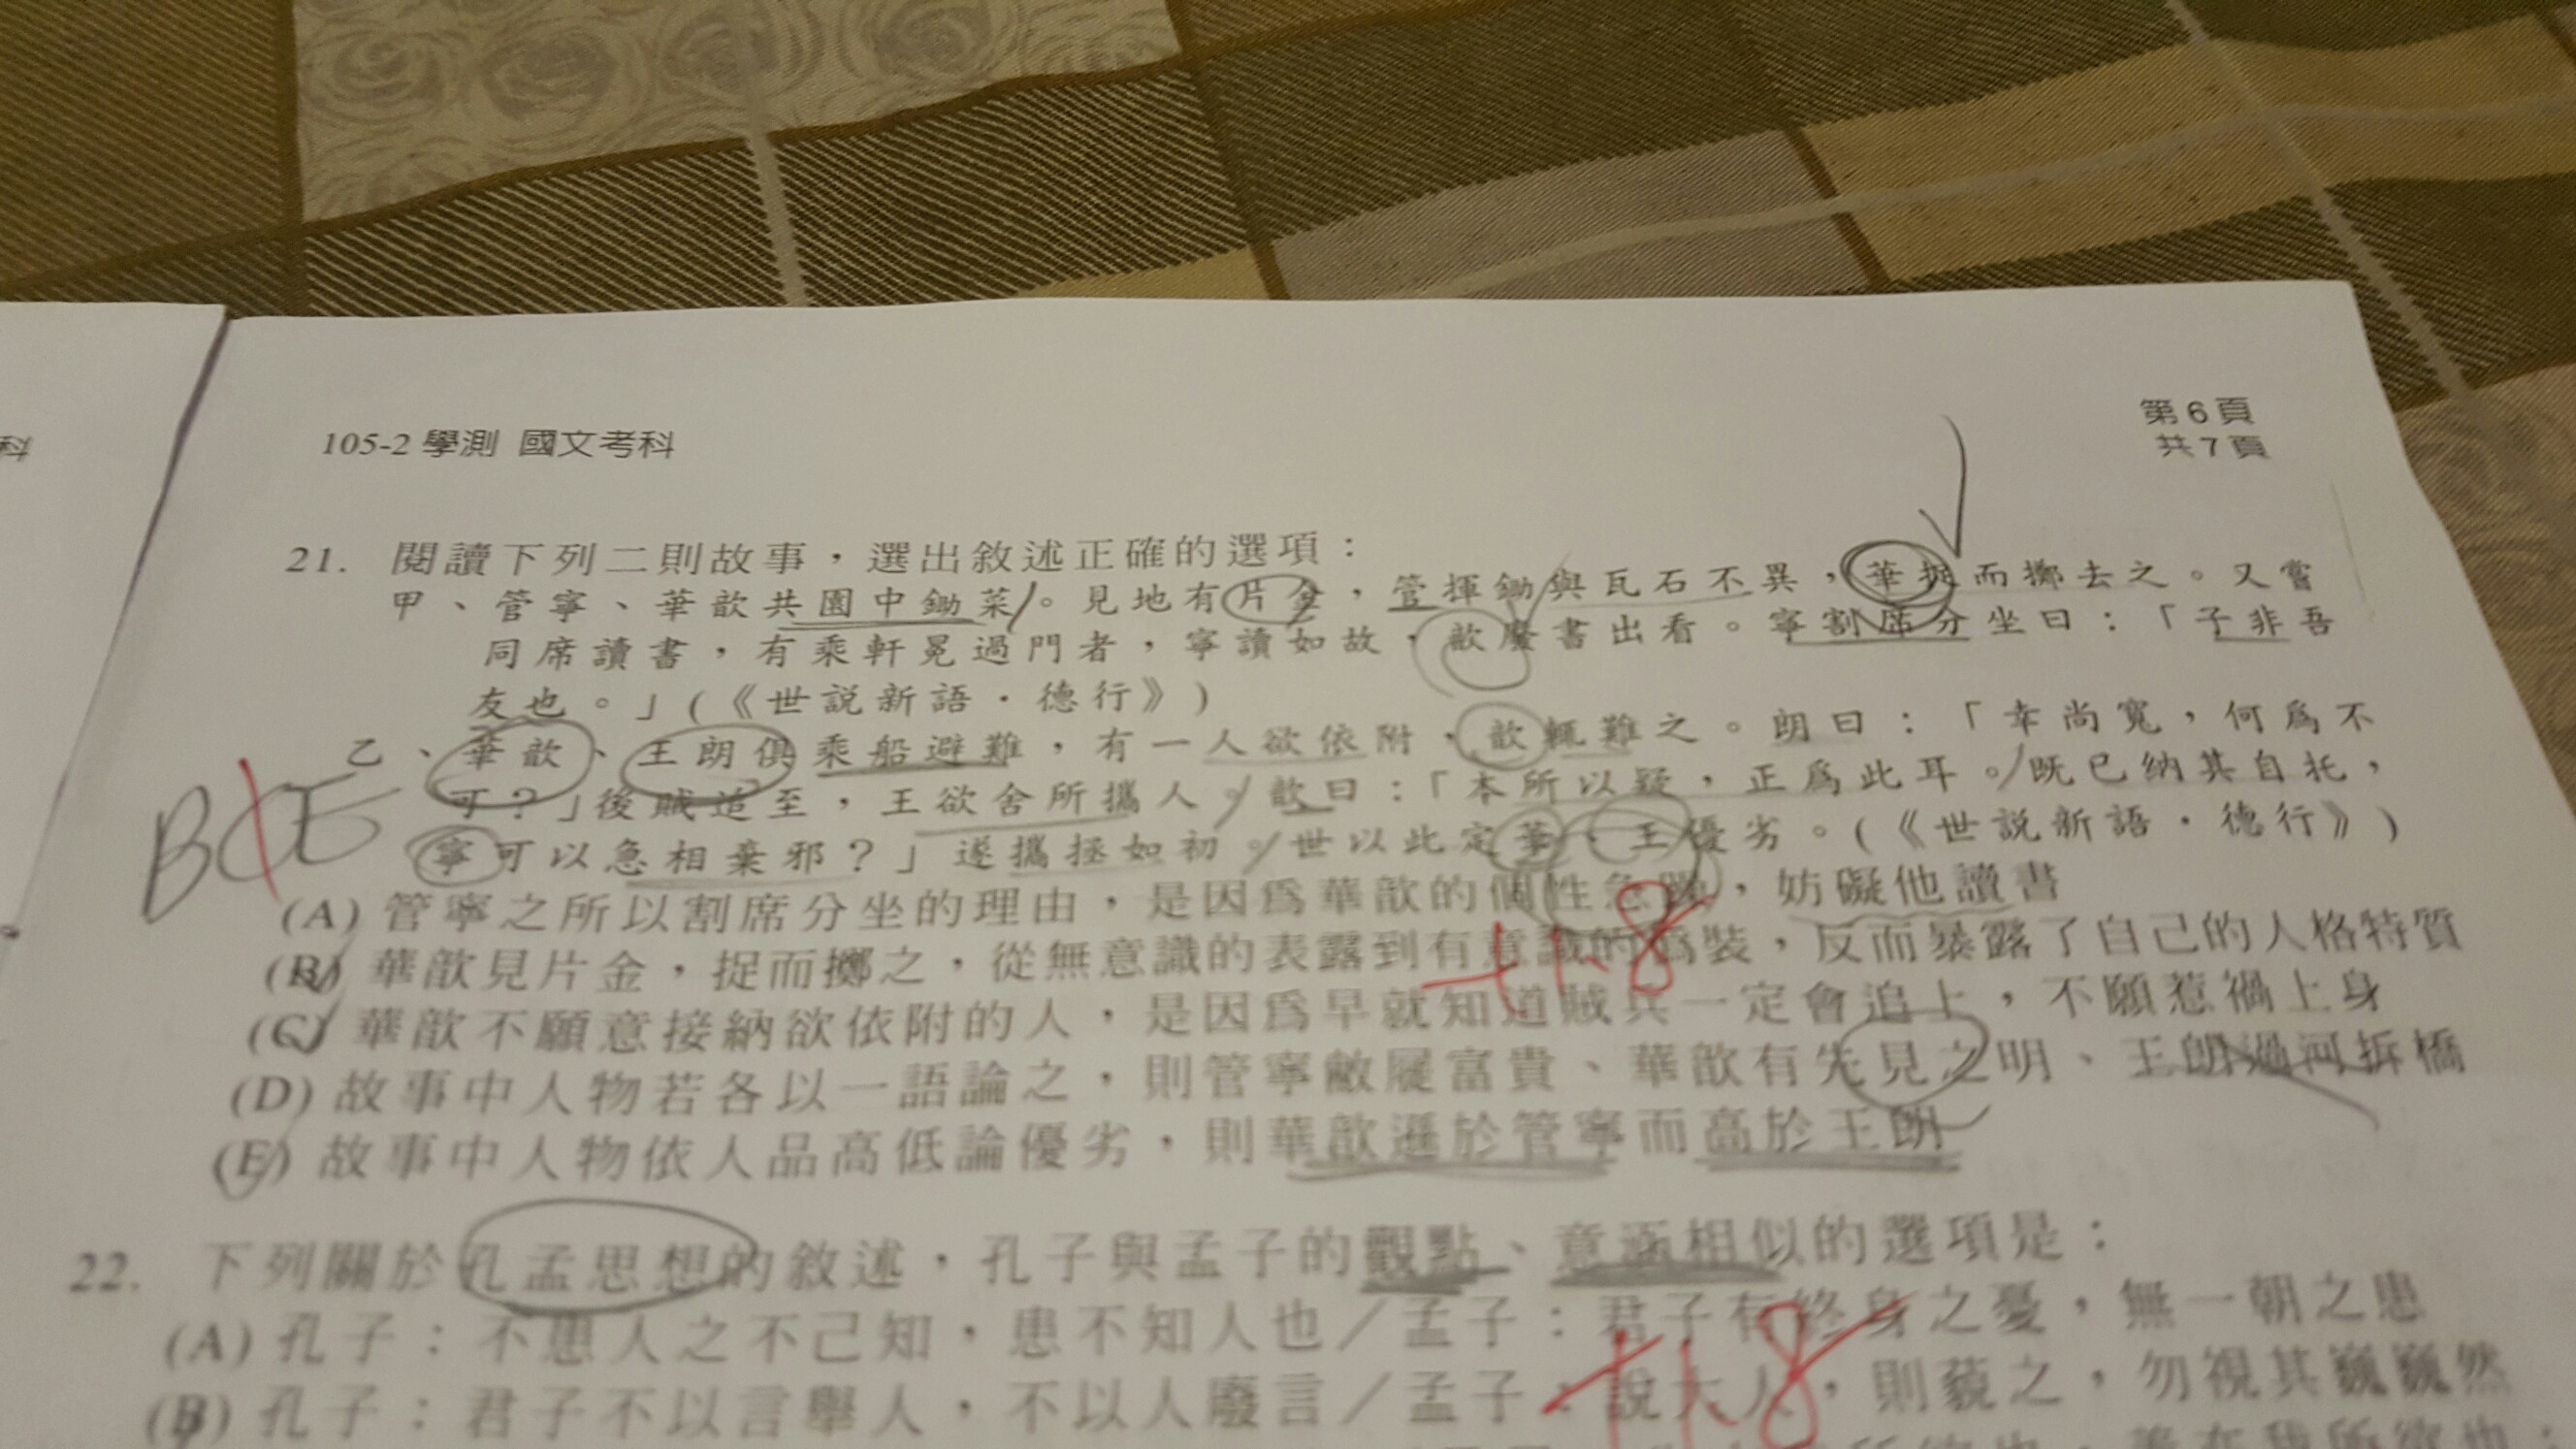 科
105-2 學測 國文考科
第6頁
共7頁
21. 閱讀下列二則故事，選出敘述正確的選項：
甲、管寧、華歆共園中鋤菜。見地有片金，管揮鋤與瓦石不異，華捉而擲去之。又嘗
同席讀書，有乘軒冕過門者，寧讀如故，歆廢書出看。寧割席分坐曰：「子非吾
友也。」(《世說新語．德行》)
乙、華歆、王朗俱乘船避難，有一人欲依附，歆輒難之。朗曰：「幸尚寬，何為不
可？」後賊追至，王欲舍所攜人。歆曰：「本所以疑，正為此耳。既已納其自托，
寧可以急相棄邪？」遂攜拯如初。世以此定華、王優劣。(《世說新語．德行》)
BCE
(A) 管寧之所以割席分坐的理由，是因為華歆的個性急躁，妨礙他讀書
(B) 華歆見片金，捉而擲之，從無意識的表露到有意識的偽裝，反而暴露了自己的人格特質
+1.8
(C) 華歆不願意接納欲依附的人，是因為早就知道賊兵一定會追上，不願惹禍上身
(D) 故事中人物若各以一語論之，則管寧敝屣富貴、華歆有先見之明、王朗過河拆橋
(E) 故事中人物依人品高低論優劣，則華歆遜於管寧而高於王朗
22. 下列關於孔孟思想的敘述，孔子與孟子的觀點、意涵相似的選項是：
(A) 孔子：不患人之不己知，患不知人也／孟子：君子有終身之憂，無一朝之患
+1.8
(B) 孔子：君子不以言舉人，不以人廢言／孟子：說大人，則藐之，勿視其巍巍然